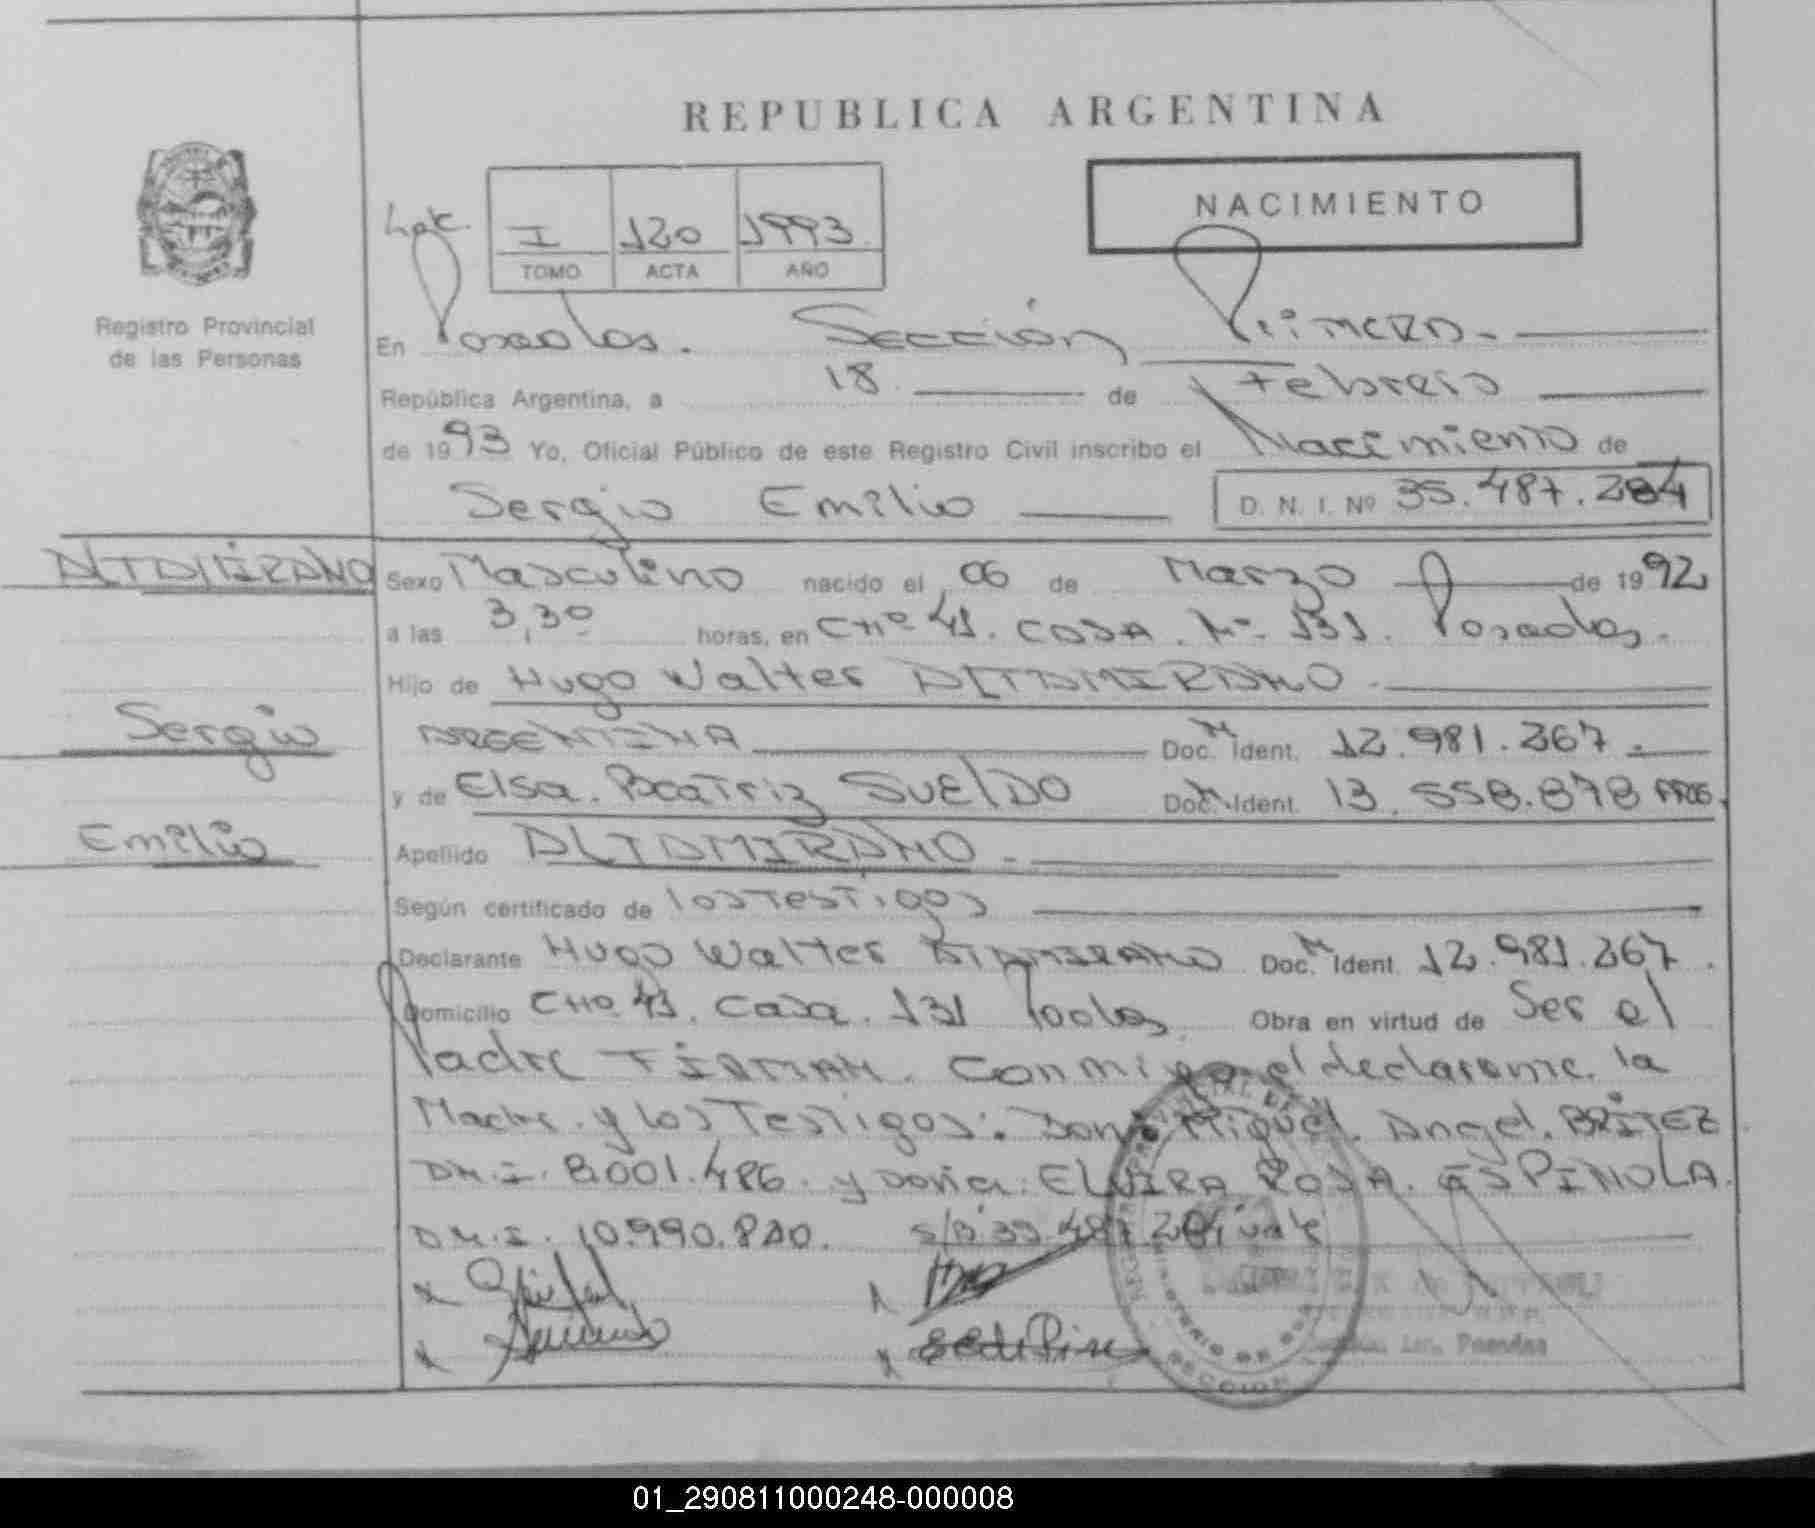 REPUBLICA ARGENTINA
NACIMIENTO
I 120 1993
TOMO ACTA AÑO
Registro Provincial
de las Personas
En Posadas. Sección Primera.
República Argentina, a 18 de Febrero
de 1993 Yo, Oficial Público de este Registro Civil inscribo el Nacimiento de
Sergio Emilio D. N. I. Nº 35.487.284
ALTAMIRANO
Sergio
Emilio
Sexo Masculino nacido el 06 de Marzo de 1992
a las 3,30 horas, en CHº 41. CASA. Nº 131. Posadas.
Hijo de Hugo Walter ALTAMIRANO.
ARGENTINA Doc. Ident. 12.981.267.
y de Elsa. Beatriz SUELDO Doc. Ident. 13.558.878 ARG.
Apellido ALTAMIRANO.
Según certificado de los Testigos
Declarante Hugo Walter ALTAMIRANO Doc. Ident. 12.981.267.
Domicilio CHº 41. Casa. 131 Podas. Obra en virtud de Ser el
Padre FIRMAN. Conmigo el declarante. la
Madre. y los Testigos: Don: Miguel. Angel. BRITEZ
DN.I. 8.001.486. y Doña: ELVIRA ROSA. ESPINOLA.
DN.I. 10.990.820. S/R 35.487.284 vale
Posadas
01_290811000248-000008